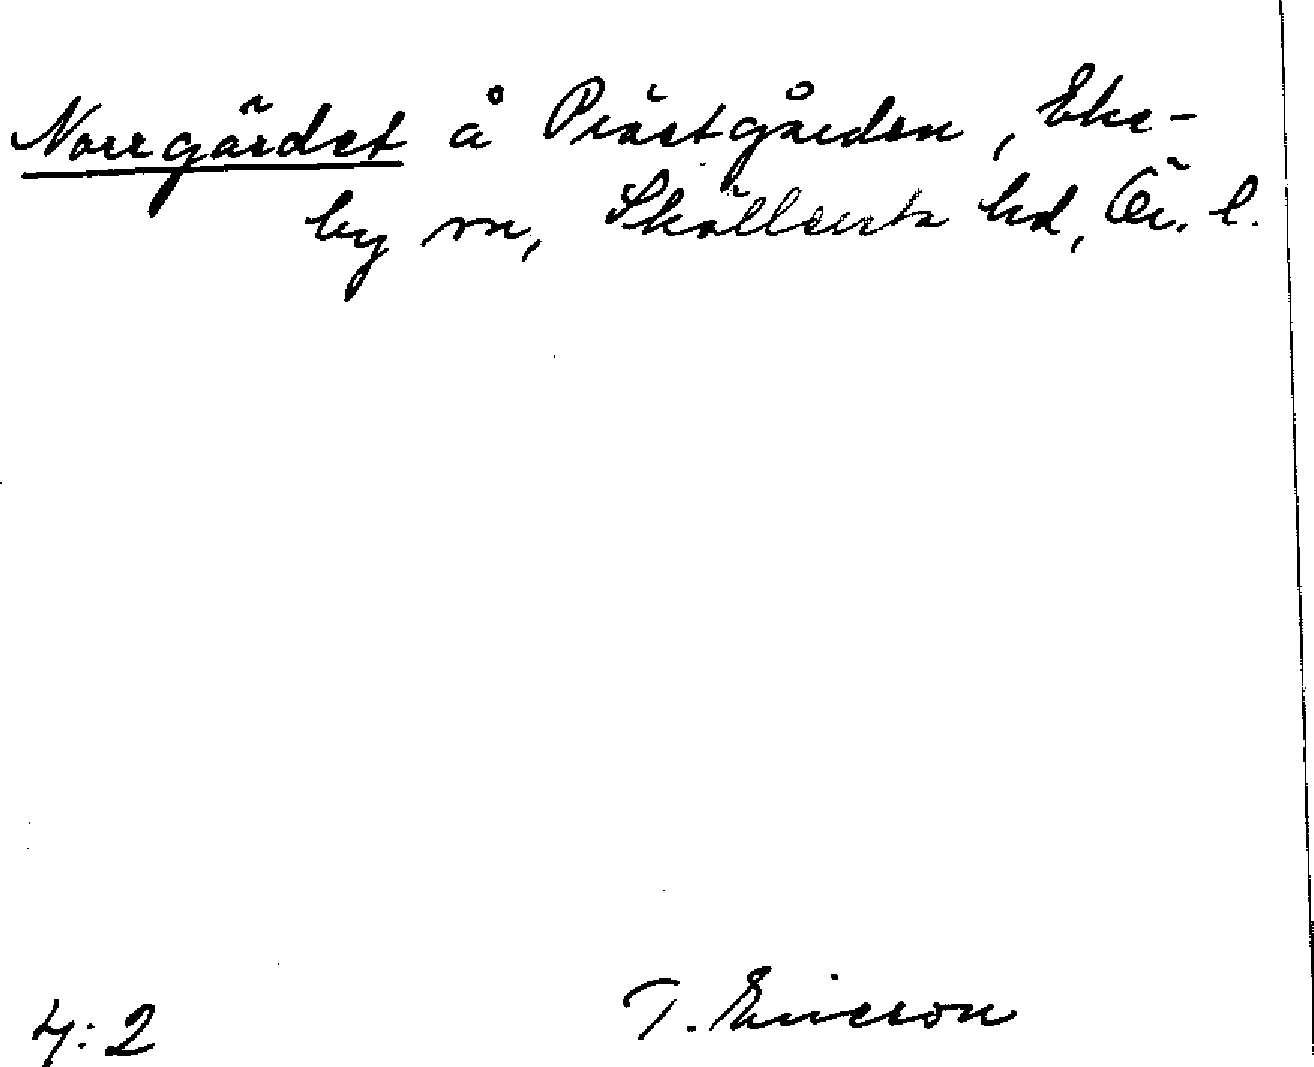 Norrgärdet å Prästgården, Eke-
by sn, Sköllersta hd, Ör. l.
4:2 T. Ericson